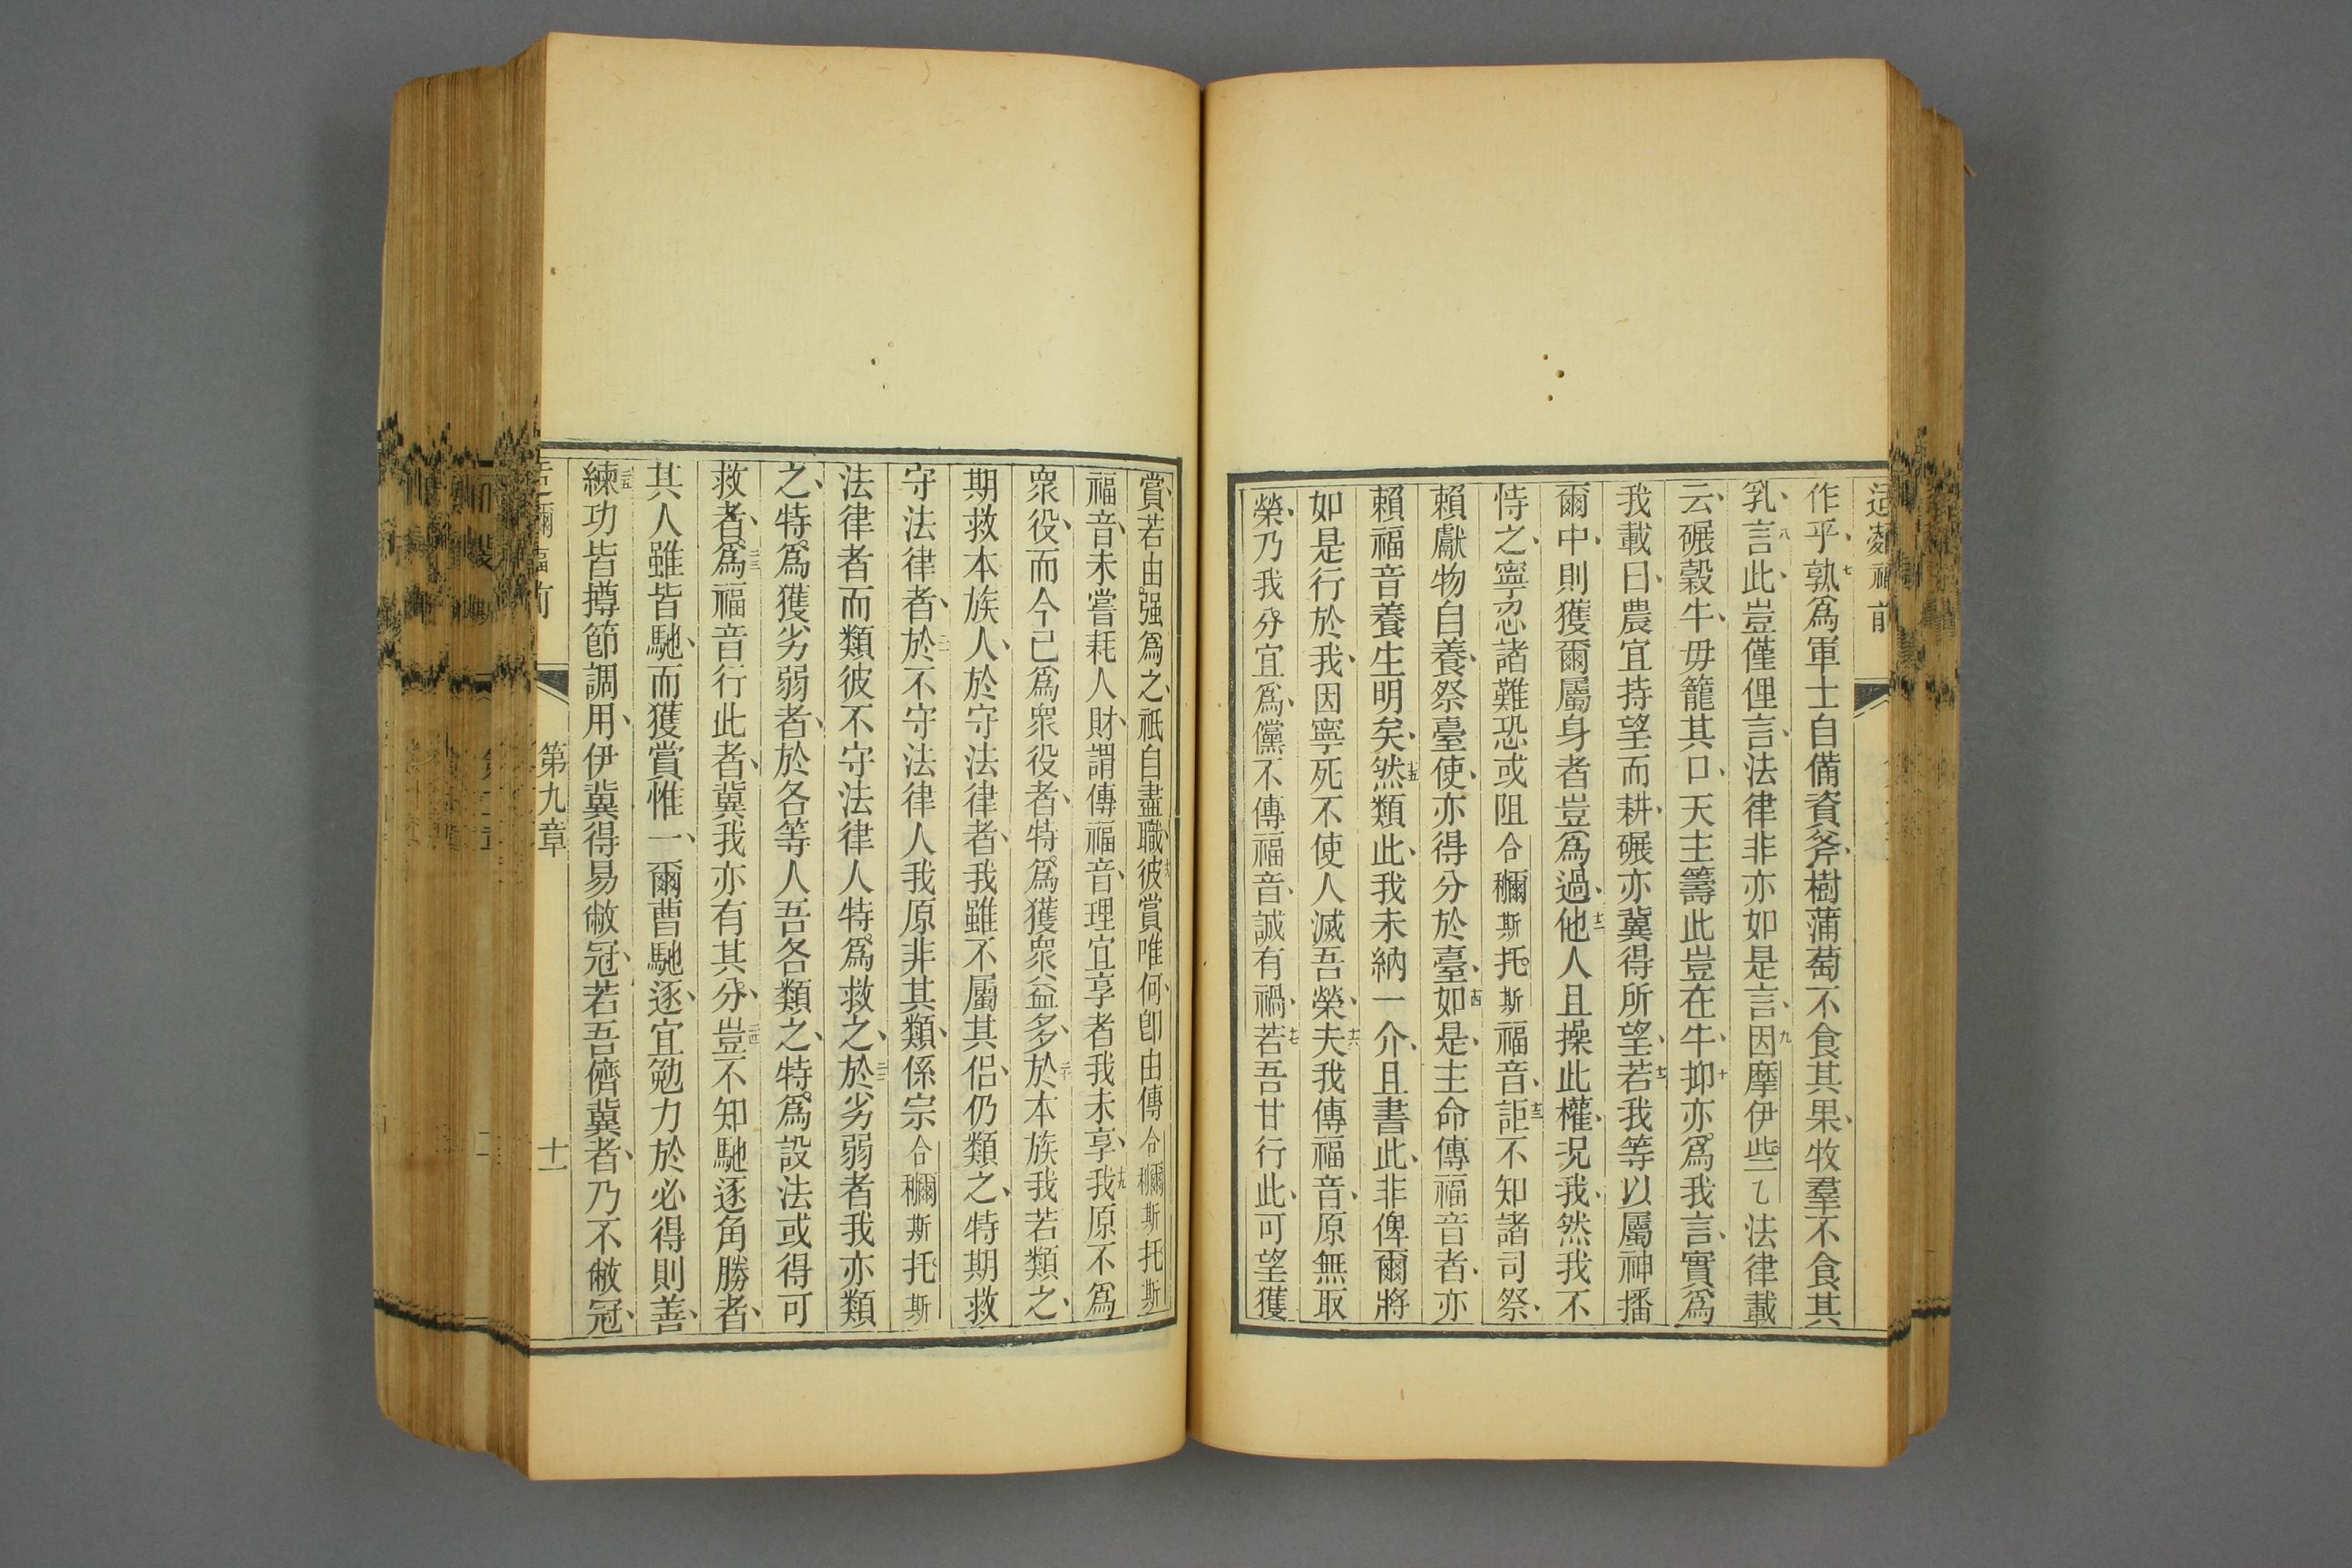 適爾福前
作乎、七孰爲軍士自備資斧、樹蒲萄不食其果、牧羣不食其
乳、八言此、豈僅俚言、法律非亦如是言、九因摩伊些乙法律載
云、碾榖牛、毋籠其口、天主籌此豈在牛、十抑亦爲我言、實爲
我載曰、農宜持望而耕、碾亦冀得所望、十一若我等以屬神播
爾中、則獲爾屬身者豈爲過、十二他人且操此權、况我、然我不
恃之、寧忍諸難恐或阻合穪斯托斯福音、十三詎不知諸司祭、
賴獻物自養、祭臺使、亦得分於臺、十四如是、主命傳福音者、亦
賴福音養生明矣、十五然類此、我未納一介、且書此、非俾爾將
如是行於我、因寧死不使人滅吾榮、十六夫我傳福音、原無取
榮、乃我分宜爲、儻不傳福音、誠有禍、十七若吾甘行此、可望獲
賞、若由强爲之、祇自盡職、十八彼賞唯何、卽由傳合穪斯托斯
福音、未嘗耗人財、謂傳福音、理宜享者我未享、十九我原不爲
衆役、而今已爲衆役者、特爲獲衆益多、二十於本族我若類之、
期救本族人、於守法律者、我雖不屬其侣、仍類之、特期救
守法律者、二一於不守法律人我原非其類、係宗合穪斯托斯
法律者而類彼不守法律人特爲救之、二二於劣弱者我亦類
之、特爲獲劣弱者、於各等人吾各類之、特爲設法或得可
救者、二三爲福音行此者、冀我亦有其分、二四豈不知馳逐角勝者、
其人雖皆馳、而獲賞惟一、爾曹馳逐、宜勉力於必得則善、
二五練功皆撙節調用、伊冀得易敝冠、若吾儕冀者、乃不敝冠、
第九章
十一